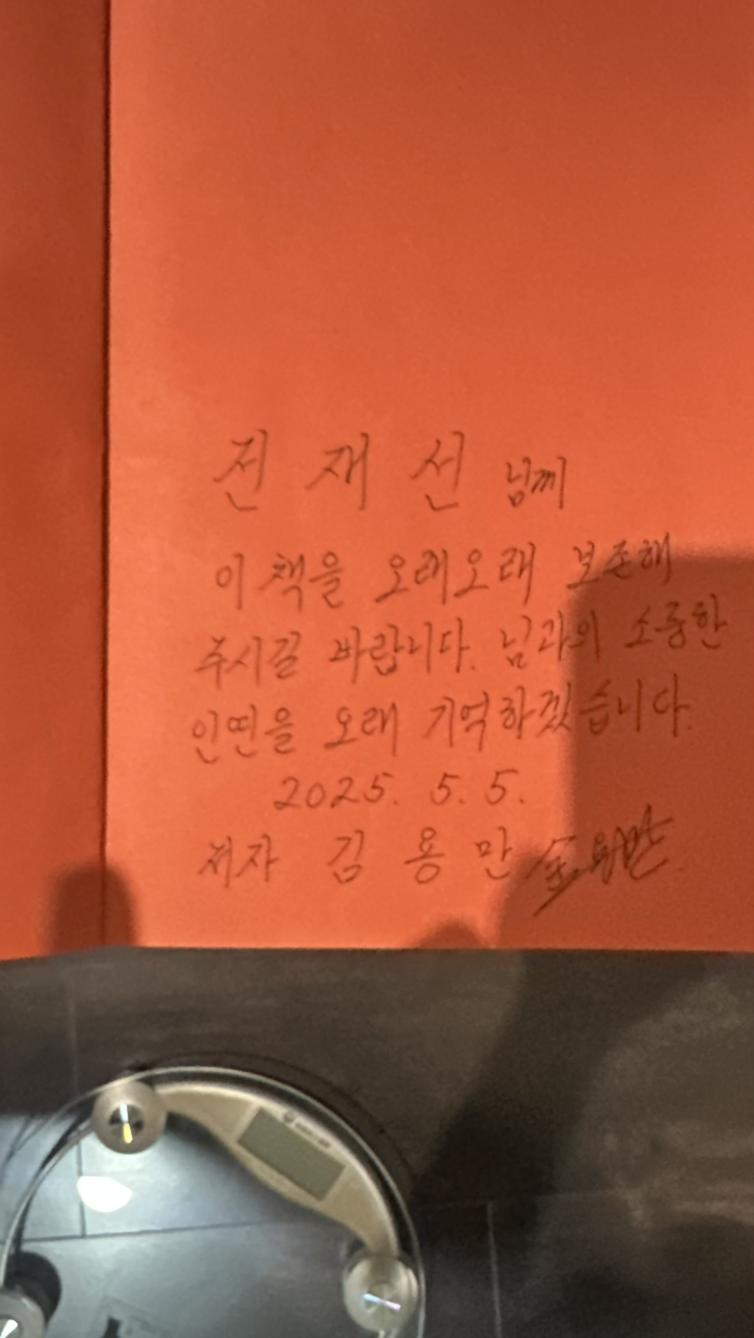 전 재 선 님께
이 책을 오래오래 보존해
주시길 바랍니다. 님과의 소중한
인연을 오래 기억하겠습니다.
2025. 5. 5.
저자 김 용 만